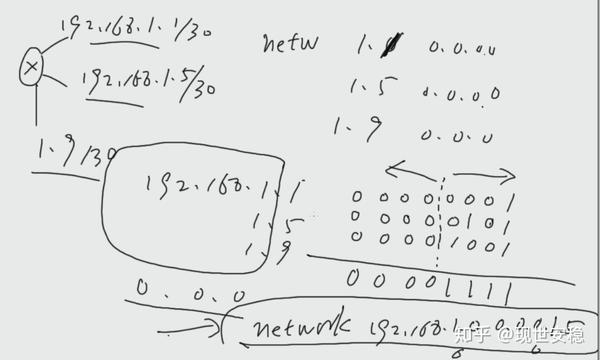 192.168.1.1/30
192.168.1.5/30
1.9/30
netw 1. 0.0.0.0
1.5 0.0.0.0
1.9 0.0.0
192.168.1.1
1.5
1.9
0 0 0 0 0 0 0 1
0 0 0 0 0 1 0 1
0 0 0 0 1 0 0 1
0 0 0 0 1 1 1 1
0.0.0
network 192.168.1.0 0.0.0.15
知乎 @现世安稳